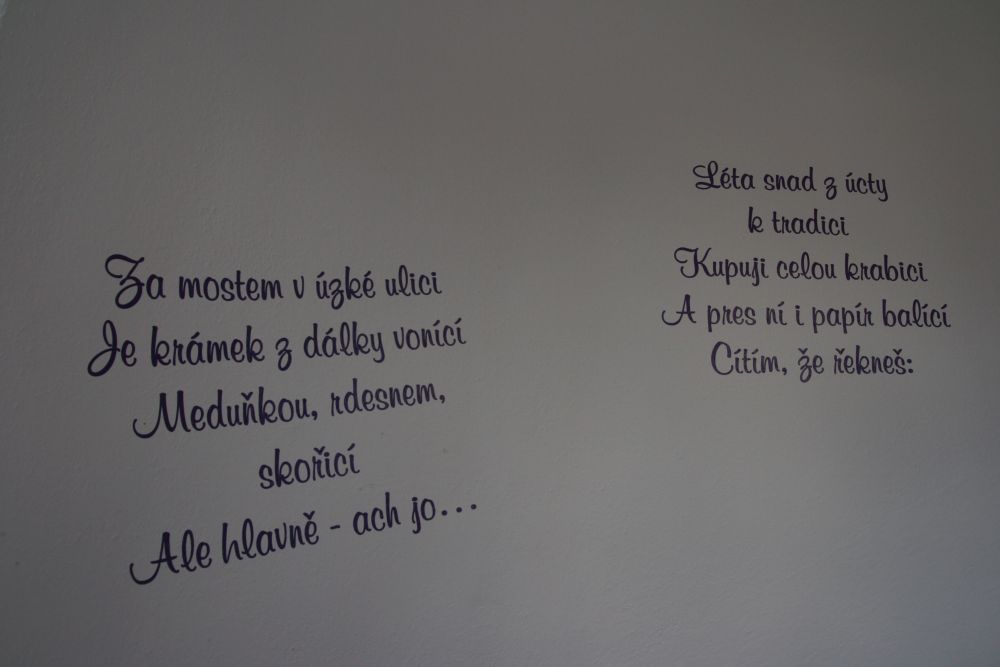 Za mostem v úzké ulici
Je krámek z dálky vonící
Meduňkou, rdesnem,
skořicí
Ale hlavně - ach jo...
Léta snad z úcty
k tradici
Kupuji celou krabici
A pres ní i papír balící
Cítím, že řekneš: